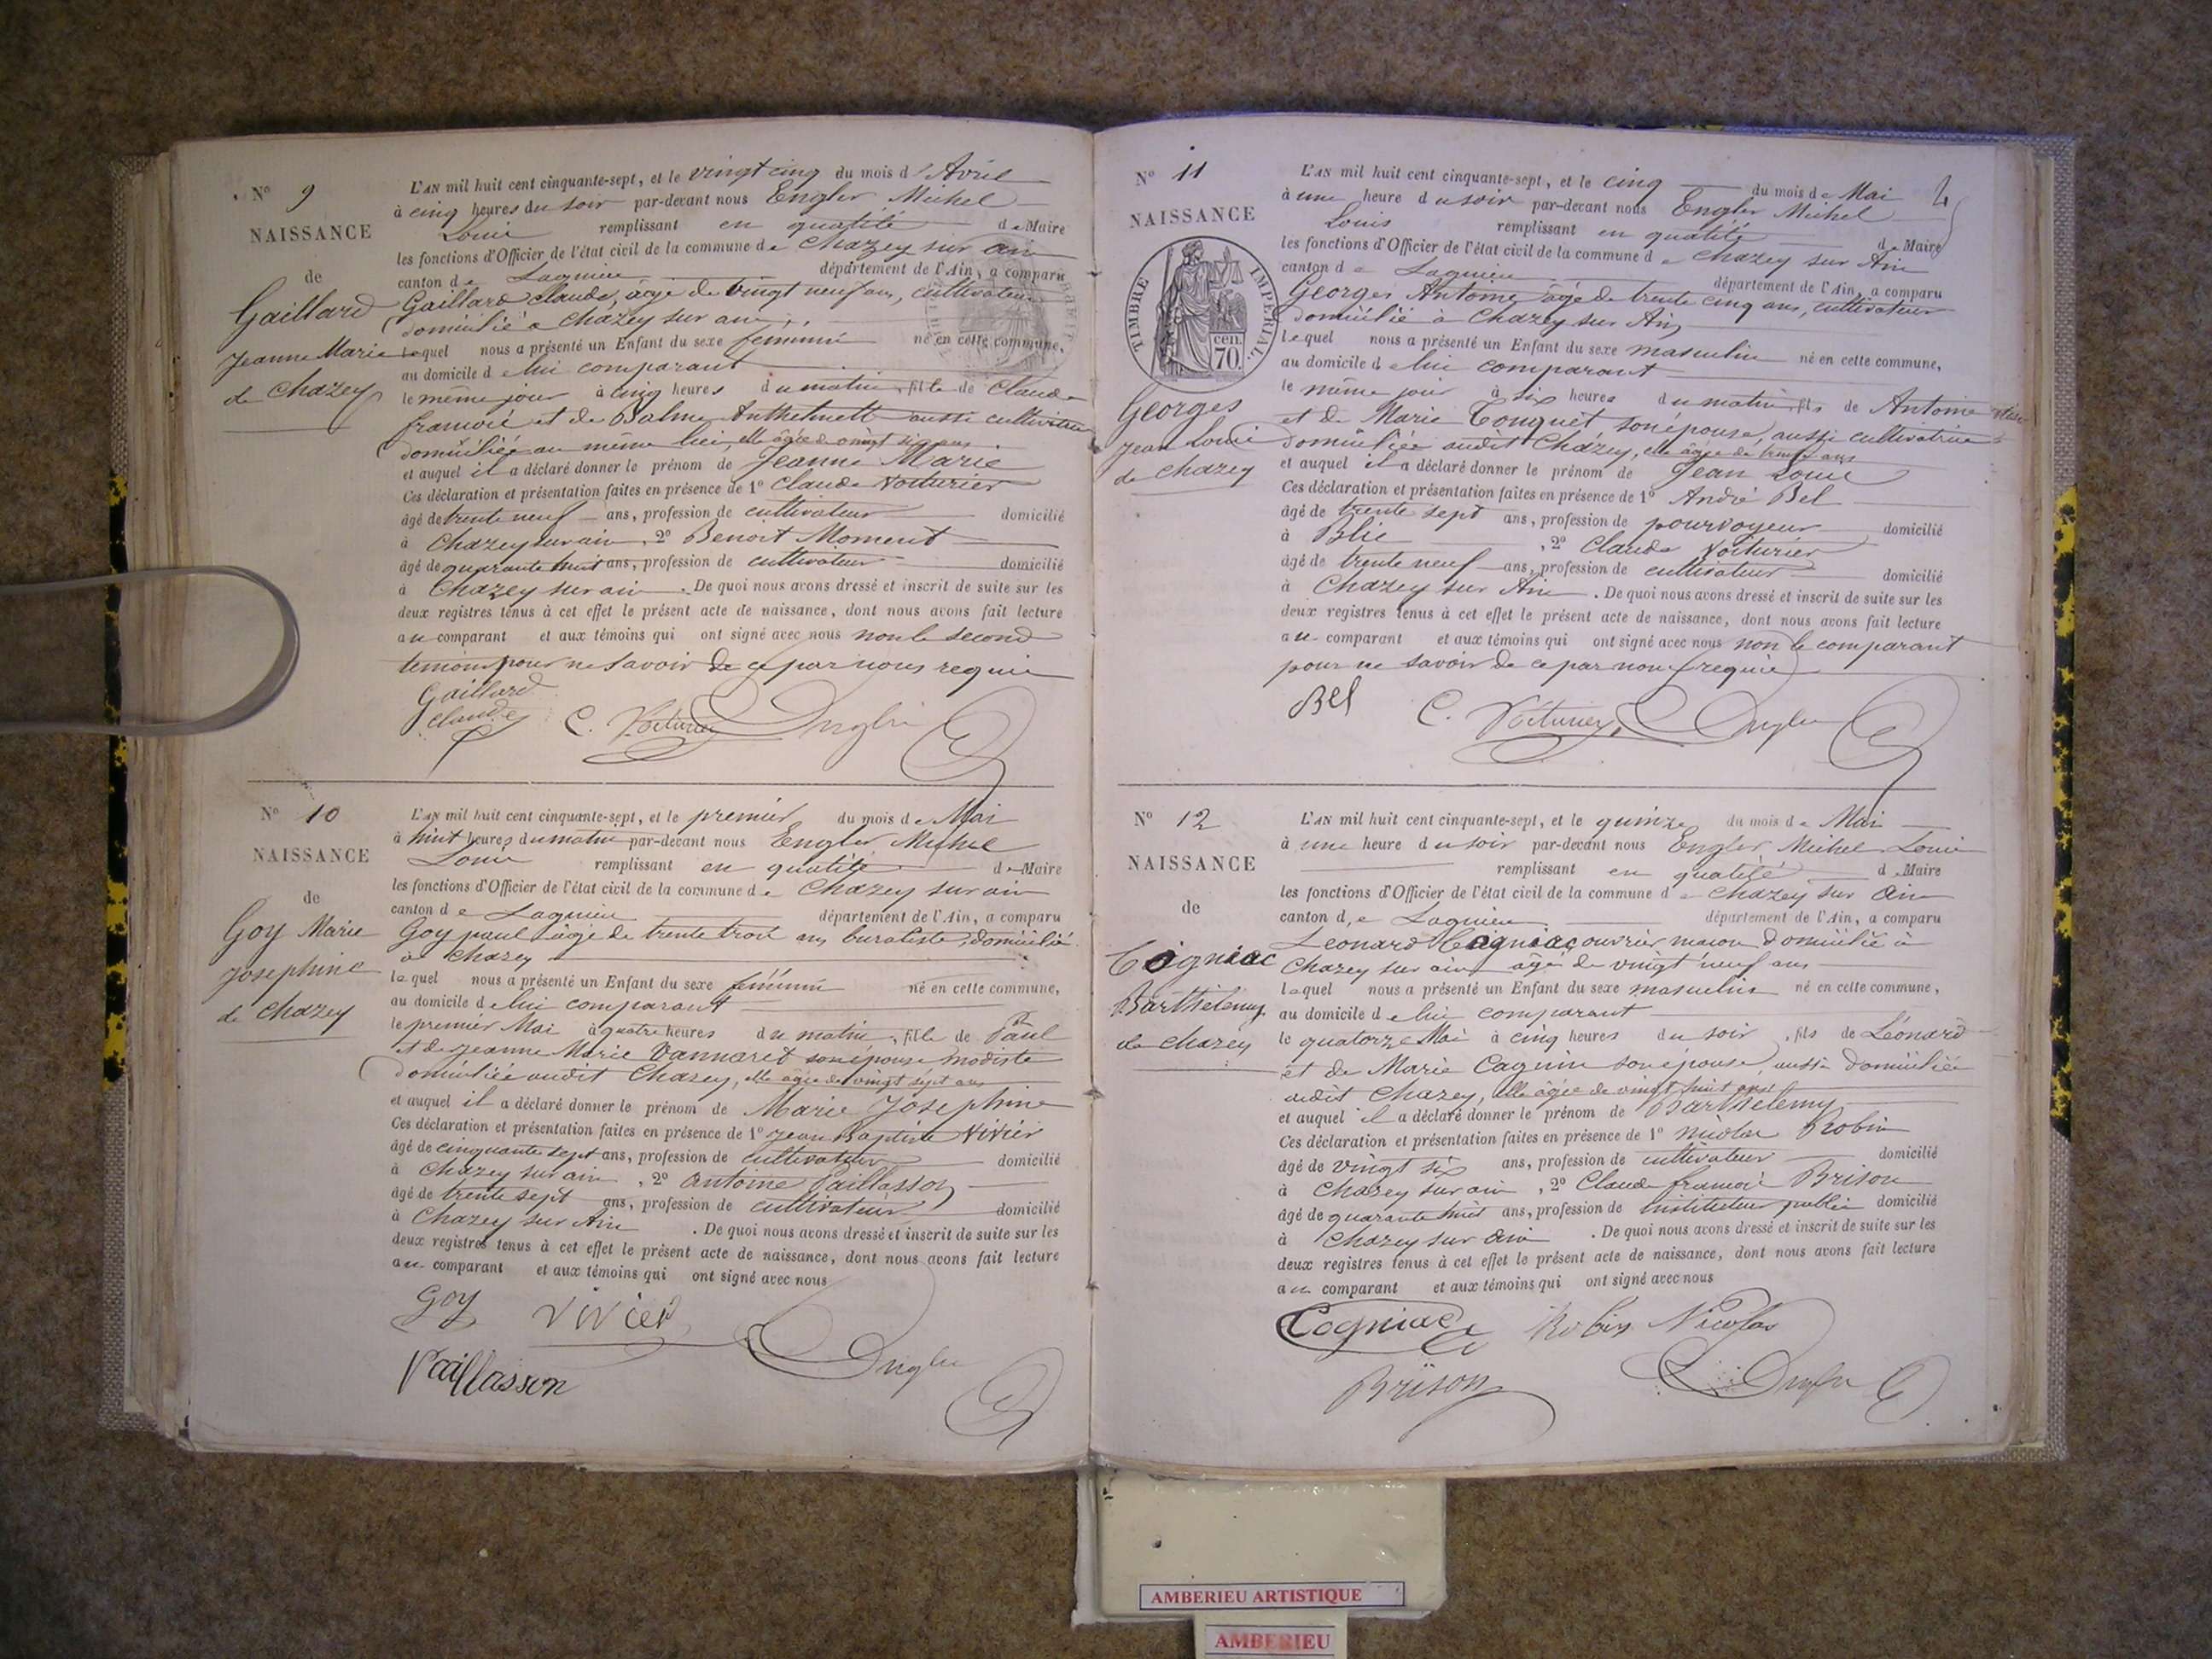 N° 9
NAISSANCE
de
Gaillard
Jeanne Marie
de Chazey
L'AN mil huit cent cinquante-sept, et le vingt cinq du mois d'Avril
à cinq heures du soir par-devant nous Engler Michel
Louis remplissant en qualité de Maire
les fonctions d'Officier de l'état civil de la commune de Chazey sur ain
canton de Lagnieu département de l'Ain, a comparu
Gaillard Claude, âgé de vingt neuf ans, cultivateur
domicilié a Chazey sur ain
lequel nous a présenté un Enfant du sexe féminin né en cette commune,
au domicile de lui comparant
le même jour à cinq heures du matin, fille de Claude
françois et de Balme Anthelmette aussi cultivatrice
domiciliée au même lieu, elle âgée de vingt six ans
et auquel il a déclaré donner le prénom de Jeanne Marie
Ces déclaration et présentation faites en présence de 1° Claude Voiturier
âgé de trente neuf ans, profession de cultivateur domicilié
à Chazey sur ain, 2° Benoit Moment
âgé de quarante huit ans, profession de cultivateur domicilié
à Chazey sur ain. De quoi nous avons dressé et inscrit de suite sur les
deux registres tenus à cet effet le présent acte de naissance, dont nous avons fait lecture
au comparant et aux témoins qui ont signé avec nous non le second
temoin pour ne savoir de ce par nous requis
Gaillard
Claude C. Voiturier Engler
N° 10
NAISSANCE
de
Goy Marie
Josephine
de Chazey
L'AN mil huit cent cinquante-sept, et le premier du mois de Mai
à huit heures du matin par-devant nous Engler Michel
Louis remplissant en qualité de Maire
les fonctions d'Officier de l'état civil de la commune de Chazey sur ain
canton de Lagnieu département de l'Ain, a comparu
Goy paul âgé de trente trois ans buraliste, domicilié
à Chazey
lequel nous a présenté un Enfant du sexe féminin né en cette commune,
au domicile de lui comparant
le premier Mai à quatre heures du matin, fille de Paul
et de Jeanne Marie Vannaret son épouse modiste
domiciliée audit Chazey, elle âgée de vingt sept ans
et auquel il a déclaré donner le prénom de Marie Josephine
Ces déclaration et présentation faites en présence de 1° Jean Baptiste Vivier
âgé de cinquante sept ans, profession de cultivateur domicilié
à Chazey sur ain, 2° Antoine Paillasson
âgé de trente sept ans, profession de cultivateur domicilié
à Chazey sur Ain. De quoi nous avons dressé et inscrit de suite sur les
deux registres tenus à cet effet le présent acte de naissance, dont nous avons fait lecture
au comparant et aux témoins qui ont signé avec nous
Goy Vivier
Paillasson Engler
N° 11
NAISSANCE
TIMBRE IMPÉRIAL
cen.
70.
Georges
Jean Louis
de Chazey
L'AN mil huit cent cinquante-sept, et le cinq du mois de Mai
à une heure du soir par-devant nous Engler Michel
Louis remplissant en qualité de Maire
les fonctions d'Officier de l'état civil de la commune de Chazey sur Ain
canton de Lagnieu département de l'Ain, a comparu
Georges Antoine âgé de trente cinq ans, cultivateur
domicilié à Chazey sur Ain
lequel nous a présenté un Enfant du sexe masculin né en cette commune,
au domicile de lui comparant
le même jour à six heures du matin, fils de Antoine
et de Marie Conquet, son épouse, aussi cultivatrice
domiciliée audit Chazey, elle âgée de trente ans
et auquel il a déclaré donner le prénom de Jean Louis
Ces déclaration et présentation faites en présence de 1° André Bel
âgé de trente sept ans, profession de pourvoyeur domicilié
à Blie, 2° Claude Voiturier
âgé de trente neuf ans, profession de cultivateur domicilié
à Chazey sur Ain. De quoi nous avons dressé et inscrit de suite sur les
deux registres tenus à cet effet le présent acte de naissance, dont nous avons fait lecture
au comparant et aux témoins qui ont signé avec nous non le comparant
pour ne savoir de ce par nous requis
Bel C. Voiturier Engler
N° 12
NAISSANCE
de
Cogniac
Barthélemy
de Chazey
L'AN mil huit cent cinquante-sept, et le quinze du mois de Mai
à une heure du soir par-devant nous Engler Michel Louis
remplissant en qualité de Maire
les fonctions d'Officier de l'état civil de la commune de Chazey sur Ain
canton de Lagnieu département de l'Ain, a comparu
Leonard Cogniac ouvrier maçon domicilié à
Chazey sur ain âgé de vingt neuf ans
lequel nous a présenté un Enfant du sexe masculin né en cette commune,
au domicile de lui comparant
le quatorze Mai à cinq heures du soir, fils de Léonard
et de Marie Cagnin son épouse, aussi domiciliée
audit Chazey, elle âgée de vingt huit ans
et auquel il a déclaré donner le prénom de Barthelemy
Ces déclaration et présentation faites en présence de 1° Nicolas Robin
âgé de vingt six ans, profession de cultivateur domicilié
à Chazey sur ain, 2° Claude françois Brison
âgé de quarante huit ans, profession de instituteur public domicilié
à Chazey sur Ain. De quoi nous avons dressé et inscrit de suite sur les
deux registres tenus à cet effet le présent acte de naissance, dont nous avons fait lecture
au comparant et aux témoins qui ont signé avec nous
Cogniac Robin Nicolas
Brison Engler
AMBERIEU ARTISTIQUE
AMBERIEU